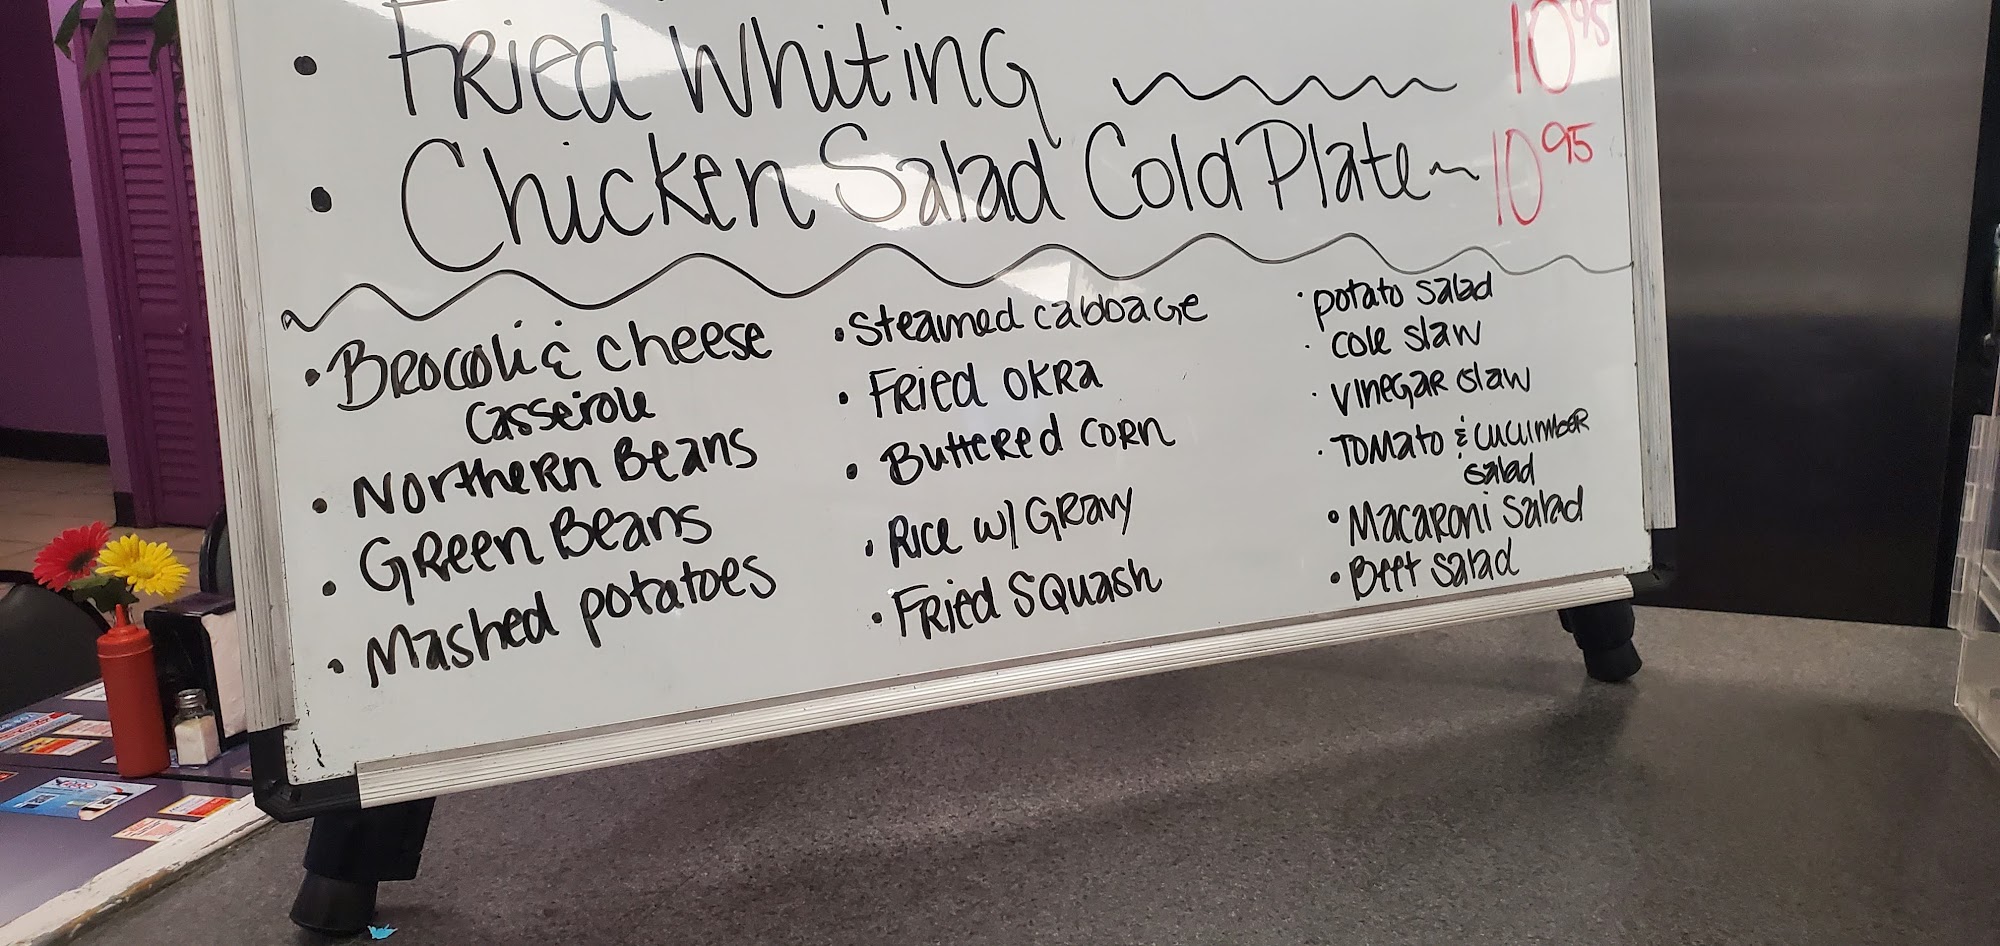 • Fried Whiting 10.95
• Chicken Salad Cold Plate 10.95
• Broccoli & cheese
casserole
• Northern Beans
• Green Beans
• Mashed potatoes
• Steamed cabbage
• Fried okra
• Buttered corn
• Rice w/ Gravy
• Fried Squash
• potato salad
• cole slaw
• vinegar slaw
• Tomato & cucumber
salad
• Macaroni salad
• Beet salad